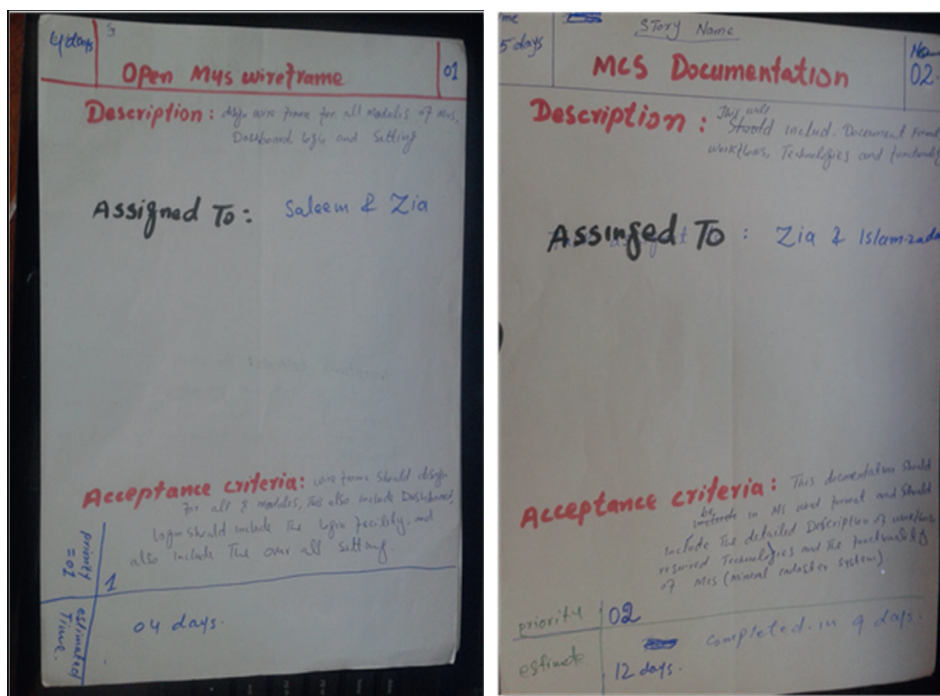 4 days
Open Mys wireframe
01
Description: design wire frame for all modules of mcs,
Dashboard login and Setting
Assigned To: Saleem & Zia
Acceptance criteria: wire frame should design
for all 8 modules, This also include Dashboard,
login should include The login facility, and
also include The over all setting.
priority = 01
1
estimated Time.
04 days.
me
5 days
Story Name
No
02
MCS Documentation
Description: This will
Should includ. Document Format
workflows, Technologies and functionality
Assinged To : Zia & Islamzada
Acceptance criteria: This documentation should
be in MS word format and should
include The detailed Description of workflows
required Technologies and The functionality
of Mcs (mineral cadaster system).
priority 02
estimate 12 days. completed in 9 days.